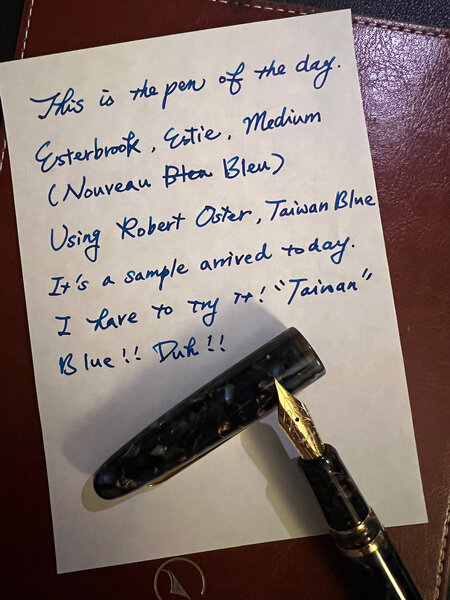 This is the pen of the day.
Esterbrook, Estie, Medium
(Nouveau Blea Bleu)
Using Robert Oster, Taiwan Blue
It's a sample arrived today.
I have to try it! "Taiwan"
Blue!! Duh!!